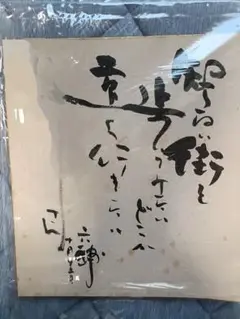 知らない街を
歩いてみたい
どこか
遠くへ行きたい
六輔